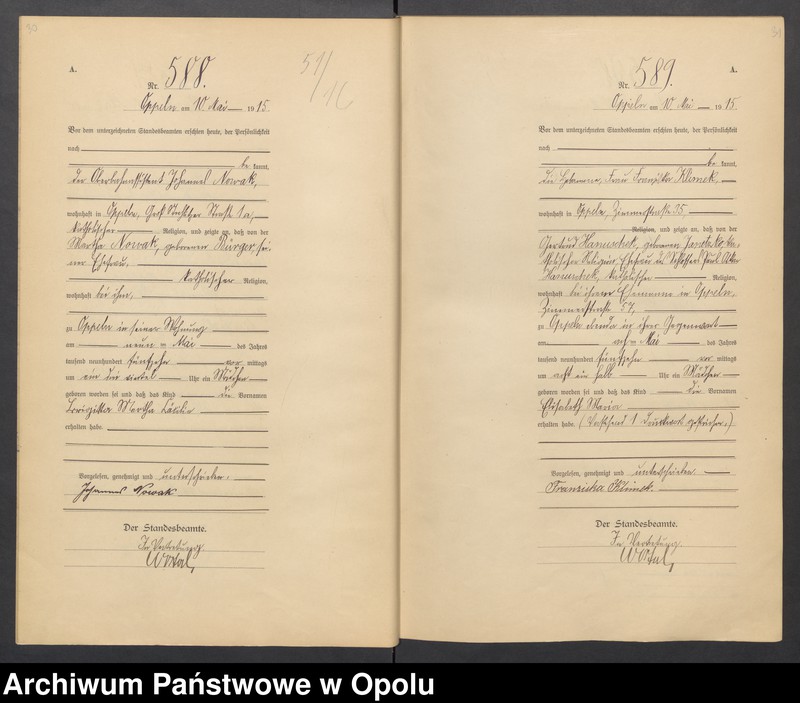 30
A.
Nr. 588.
51/16
Oppeln am 10 Mai 1915.
Vor dem unterzeichneten Standesbeamten erschien heute, der Persönlichkeit
nach
be kannt,
der Oberbahnassistent Johannes Nowak,
wohnhaft in Oppeln, Groß Straße 1a,
katholischer Religion, und zeigte an, daß von der
Martha Nowak, geborenen Bürger, sei-
ner Ehefrau,
katholischer Religion,
wohnhaft bei ihm,
zu Oppeln in seiner Wohnung
am neunten Mai des Jahres
tausend neunhundert fünfzehn vor mittags
um ein drei viertel Uhr ein Mädchen
geboren worden sei und daß das Kind die Vornamen
Martha Cäcilia
erhalten habe.
Vorgelesen, genehmigt und unterschrieben.
Johannes Nowak
Der Standesbeamte.
In Vertretung
31
A.
Nr. 589.
Oppeln am 10 Mai 1915
Vor dem unterzeichneten Standesbeamten erschien heute, der Persönlichkeit
nach
be kannt,
die Hebamme, Frau Franziska Klimek,
wohnhaft in Oppeln, 35
Religion, und zeigte an, daß von der
Gertrud Hanuschek, geborenen ka-
tholischer Religion, Ehefrau des Schlossers Paul
Hanuschek, katholischer Religion,
wohnhaft bei ihrem Ehemanne in Oppeln,
57,
zu Oppeln ebenda in ihrer Gegenwart
am achten Mai des Jahres
tausend neunhundert fünfzehn vor mittags
um acht ein halb Uhr ein Mädchen
geboren worden sei und daß das Kind die Vornamen
Elisabeth Maria
erhalten habe. (Vorstehend 1 Druckwort gestrichen.)
Vorgelesen, genehmigt und unterschrieben.
Franziska Klimek.
Der Standesbeamte.
In Vertretung
Archiwum Państwowe w Opolu